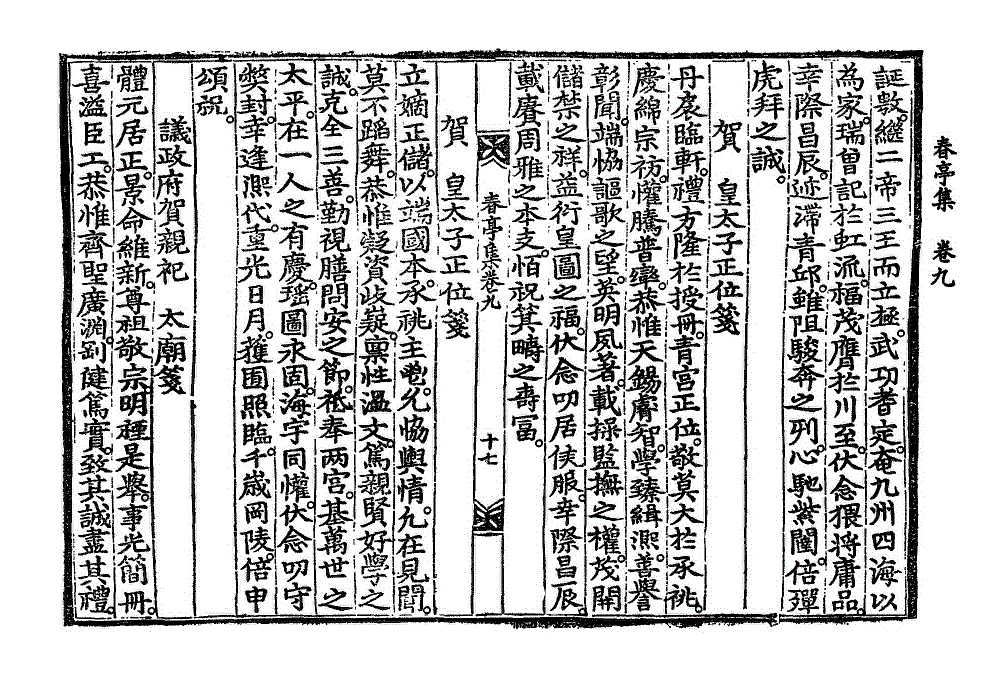 春亭集 卷九
誕敷繼二帝三王而立極武功耆定奄九州四海以
為家瑞曾記於虹流福茂膺於川至伏念猥將庸品
幸際昌辰迹滯青邱雖阻駿奔之列心馳紫闥倍殫
虎拜之誠
賀 皇太子正位箋
丹扆臨軒禮方隆於授冊青宮正位敬莫大於承祧
慶綿宗祊懽騰普率恭惟天錫膚智學臻緝熙善譽
彰聞端恊謳歌之望英明夙著載操監撫之權茂開
儲禁之祥益衍皇圖之福伏念叨居侯服幸際昌辰
載賡周雅之本支恒祝箕疇之壽富
春亭集卷九
十七
賀 皇太子正位箋
立嫡正儲以端國本承祧主鬯允恊輿情凢在見聞
莫不蹈舞恭惟凝資岐嶷禀性溫文篤親賢好學之
誠克全三善勤視膳問安之節祗奉兩宮基萬世之
太平在一人之有慶瑤圖永固海宇同懽伏念叨守
弊封幸逢熙代重光日月獲囿照臨千歲岡陵倍申
頌祝
議政府賀親祀 太廟箋
體元居正景命維新尊祖敬宗明禋是舉事光簡冊
喜溢臣工恭惟齊聖廣淵剛健篤實致其誠盡其禮